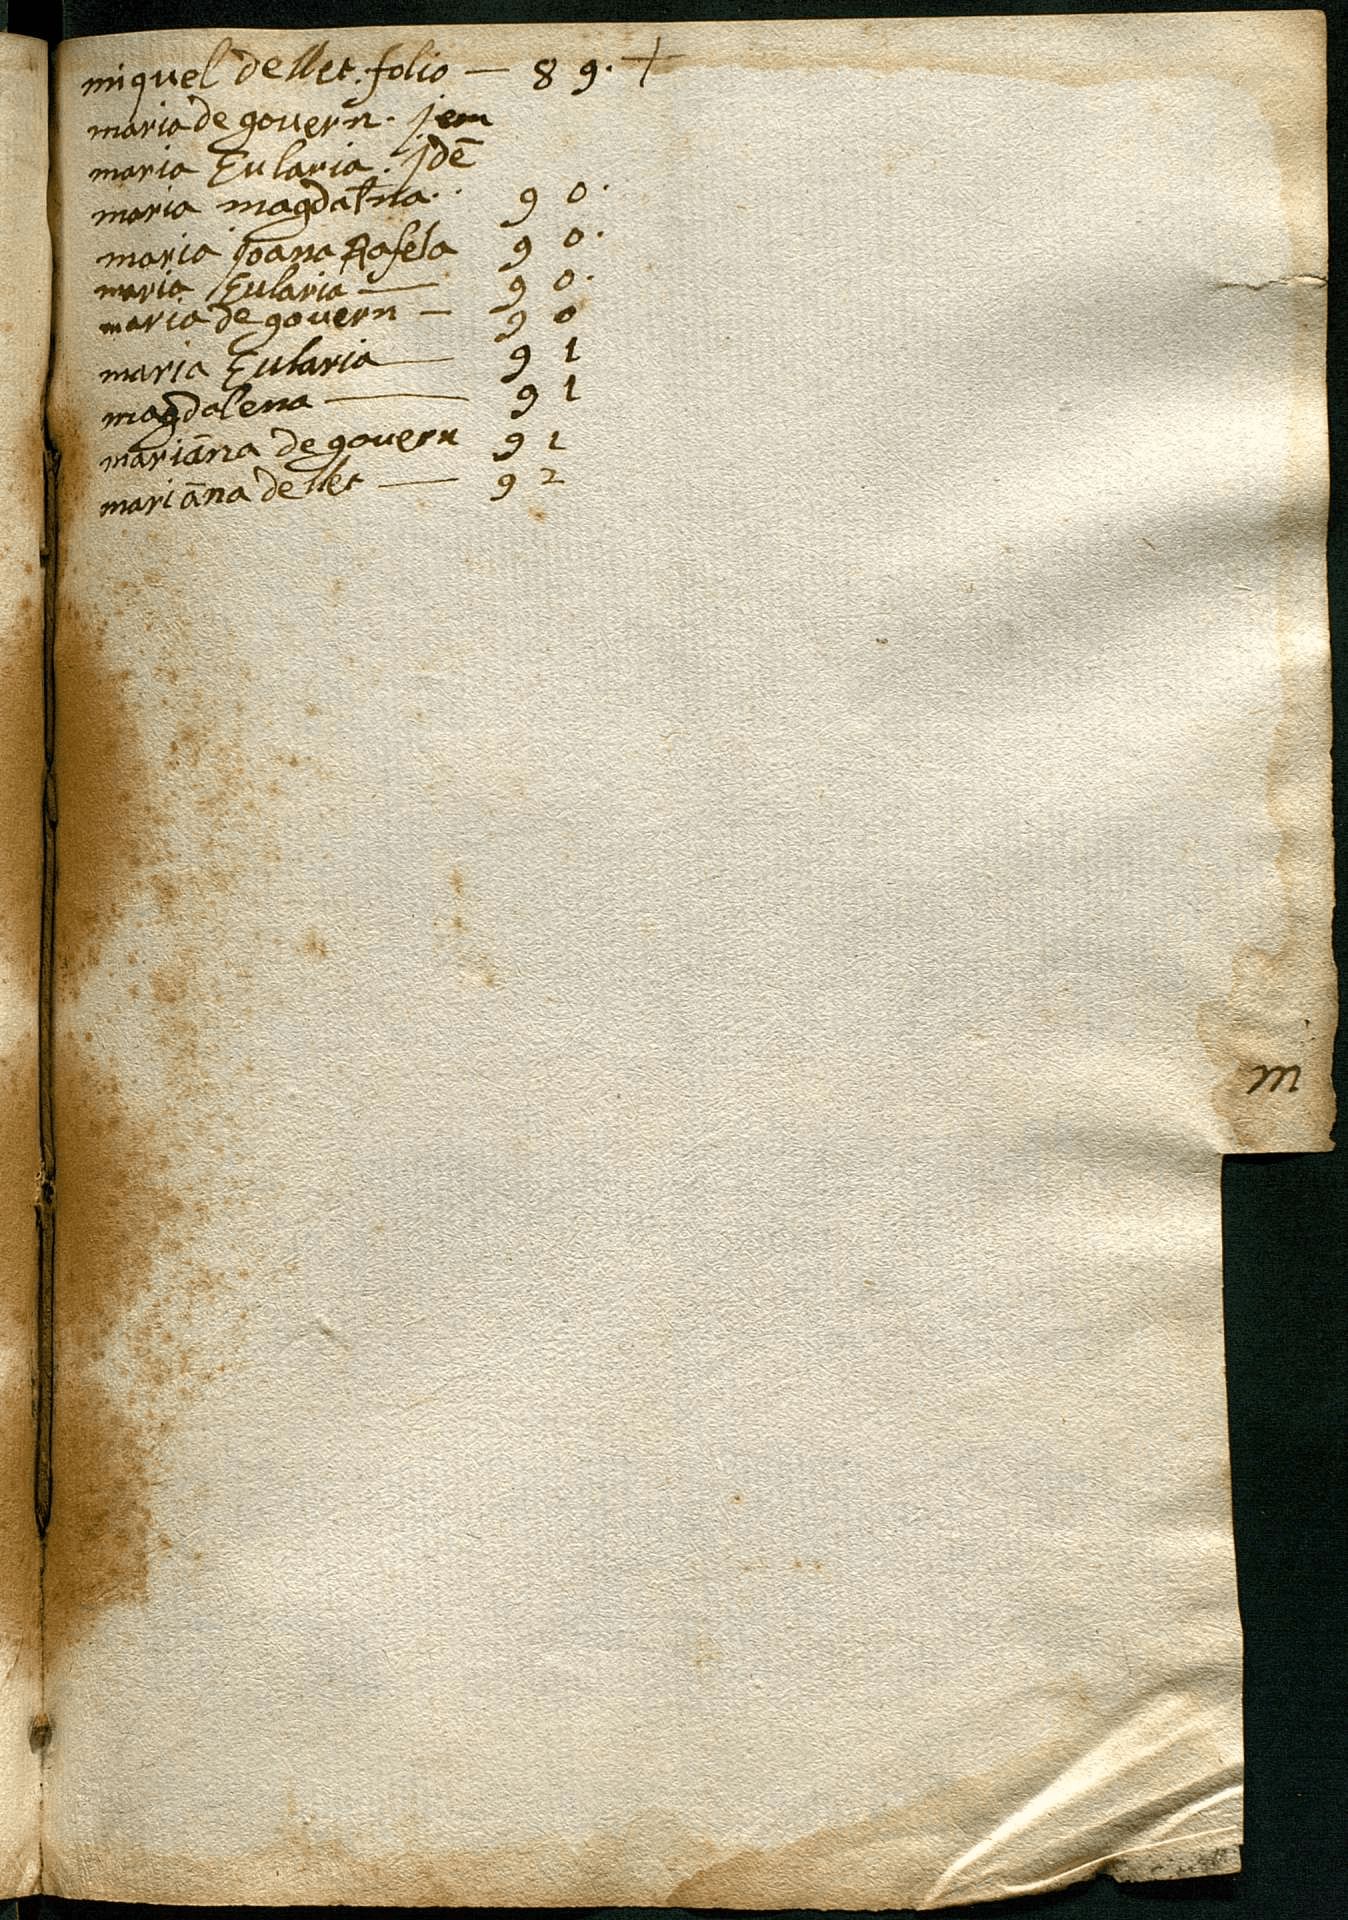 miquel de llet. folio — 89. +
maria de govern. jem
maria Eularia. jdē
maria magdalna.. 90.
maria joana Rafela 90.
maria Eularia — 90.
maria de govern — 90
maria Eularia — 91
magdalena — 91
mariāna de govern 91
mariāna de llet — 92
m